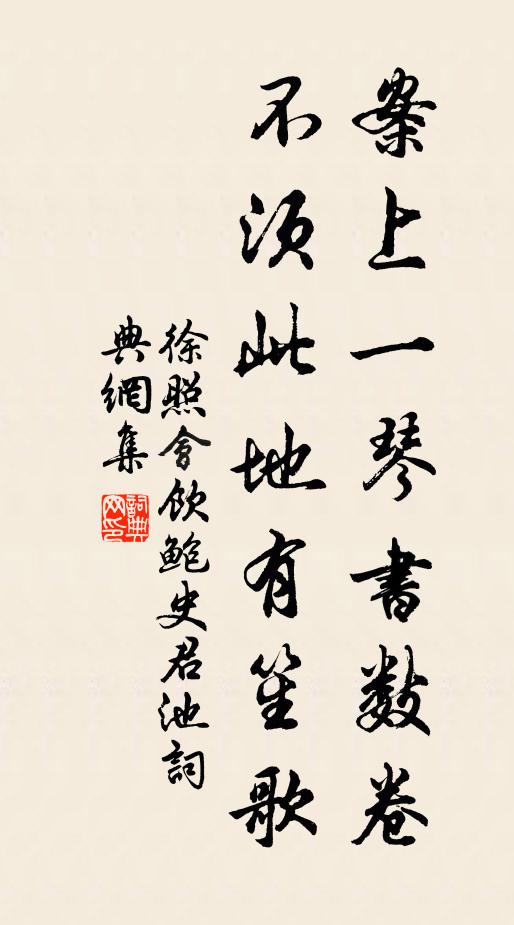 案上一琴書數卷
不須此地有笙歌
徐照會飲鮑史君池詞
典網集
詞典网印